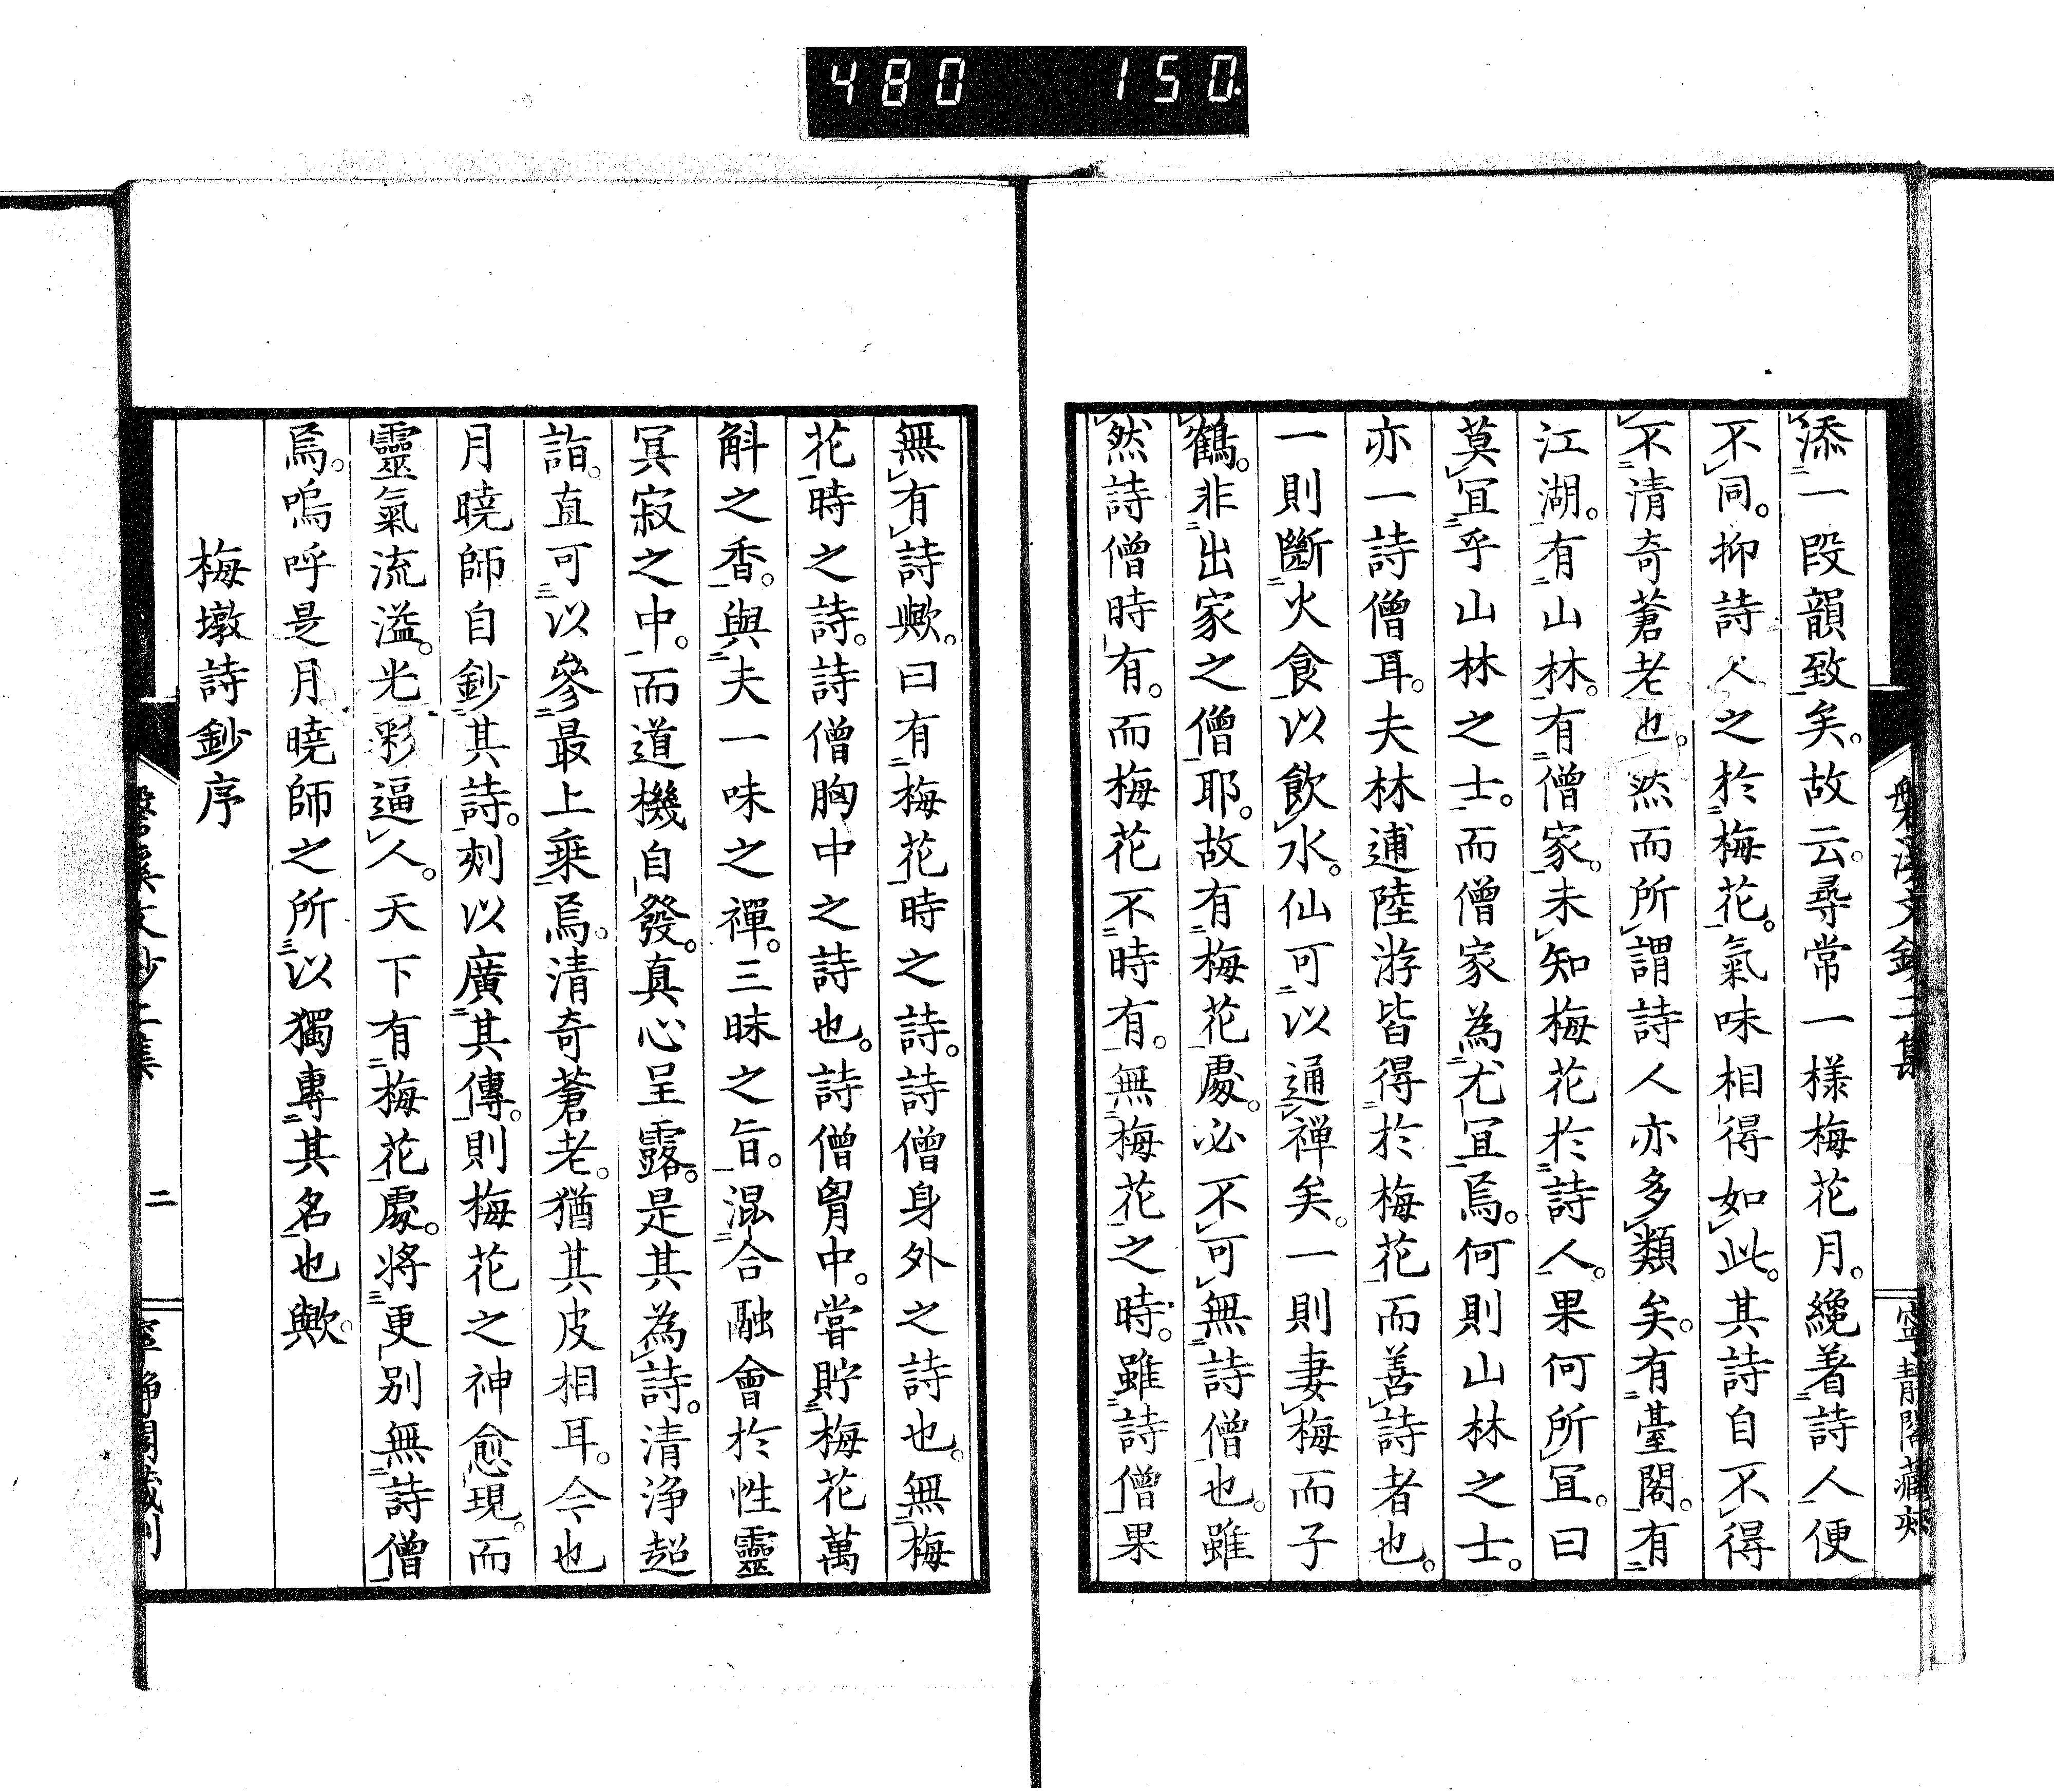 480 150
添一段韻致矣。故云。尋常一樣梅花月。纔著詩人便
不同。抑詩人之於梅花。氣味相得如此。其詩自不得
不清奇蒼老也。然而所謂詩人亦多類矣。有臺閣。有
江湖。有山林。有僧家。未知梅花於詩人。果何所宜。曰
莫宜乎山林之士。而僧家為尤宜焉。何則山林之士。
亦一詩僧耳。夫林逋陸游皆得於梅花而善詩者也。
一則斷火食以飲水。仙可以通禅矣。一則妻梅而子
鶴。非出家之僧耶。故有梅花處。必不可無詩僧也。雖
然詩僧時有。而梅花不時有。無梅花之時。雖詩僧果
無有詩歟。曰有梅花時之詩。詩僧身外之詩也。無梅
花時之詩。詩僧胸中之詩也。詩僧胷中。嘗貯梅花萬
斛之香。與夫一味之禪。三昧之旨。混合融會於性靈
冥寂之中。而道機自發。真心呈露。是其為詩。清浄超
詣。直可以參最上乗焉。清奇蒼老。猶其皮相耳。今也
月曉師自鈔其詩。刻以廣其傳。則梅花之神愈現。而
靈氣流溢。光彩逼人。天下有梅花處。将更别無詩僧
焉。嗚呼是月曉師之所以獨專其名也歟。
梅墩詩鈔序
二